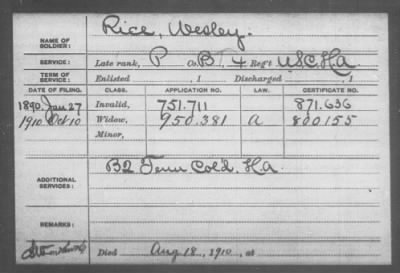 NAME OF SOLDIER: Rice, Wesley.
SERVICE: Late rank, P Co. B, 4 Reg't U.S.C.H.A.
TERM OF SERVICE: Enlisted , 1 Discharged , 1
DATE OF FILING. CLASS. APPLICATION NO. LAW. CERTIFICATE NO.
1890. Jan 27 Invalid, 751.711 871.636
1910 Oct 10 Widow, 950.381 a 800.155
Minor,
ADDITIONAL SERVICES: B 2 Tenn Col'd. H.A.
REMARKS:
Died Aug 18, 1910, at